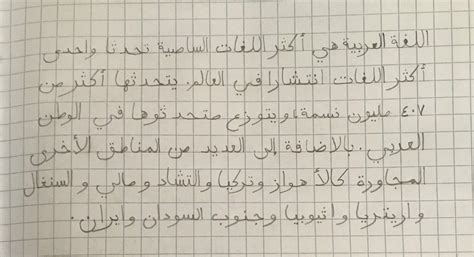 اللغة العربية هي أكثر اللغات السامية تحدثا وإحدى
أكثر اللغات انتشارا في العالم. يتحدثها أكثر من
٤٠٧ مليون نسمة، ويتوزع متحدثوها في الوطن
العربي. بالإضافة إلى العديد من المناطق الأخرى
المجاورة كالأهواز وتركيا والتشاد ومالي والسنغال
واريتريا واثيوبيا وجنوب السودان وايران.